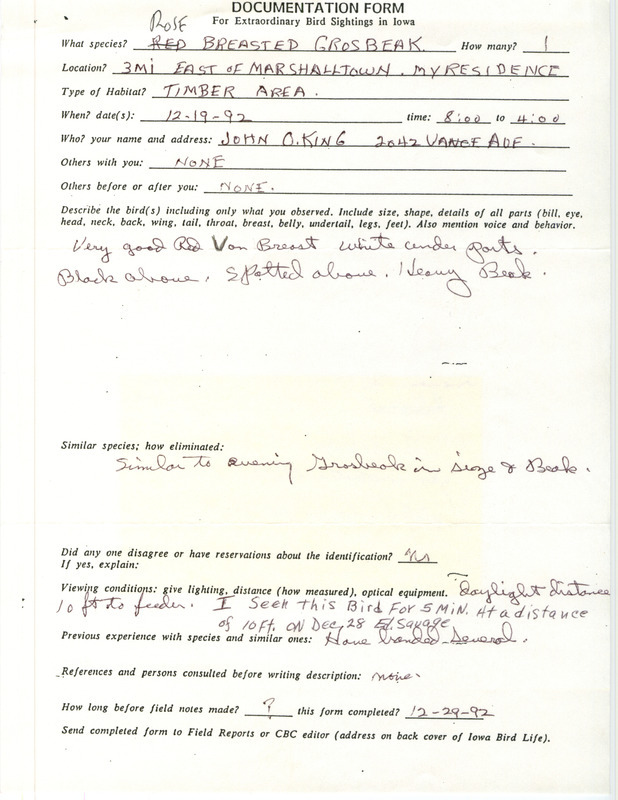 DOCUMENTATION FORM
For Extraordinary Bird Sightings in Iowa
Rose
What species? RED BREASTED GROSBEAK. How many? 1
Location? 3Mi EAST OF MARSHALLTOWN. MY RESIDENCE
Type of Habitat? TIMBER AREA.
When? date(s): 12-19-92 time: 8:00 to 4:00
Who? your name and address: JOHN O. KING 2042 VANCE AVE.
Others with you: NONE
Others before or after you: NONE.
Describe the bird(s) including only what you observed. Include size, shape, details of all parts (bill, eye,
head, neck, back, wing, tail, throat, breast, belly, undertail, legs, feet). Also mention voice and behavior.
Very good Red V on Breast white under parts.
Black above, Spotted above. Heavy Beak.
Similar species; how eliminated:
Similar to evening Grosbeak in size & Beak.
Did any one disagree or have reservations about the identification?
If yes, explain:
Viewing conditions: give lighting, distance (how measured), optical equipment. daylight distance
10 ft to feeder. I Seen this Bird For 5 MiN. At a distance
of 10 Ft. ON Dec, 28 Ed. Savage
Previous experience with species and similar ones: Have banded Several.
References and persons consulted before writing description: none.
How long before field notes made? ? this form completed? 12-29-92
Send completed form to Field Reports or CBC editor (address on back cover of Iowa Bird Life).